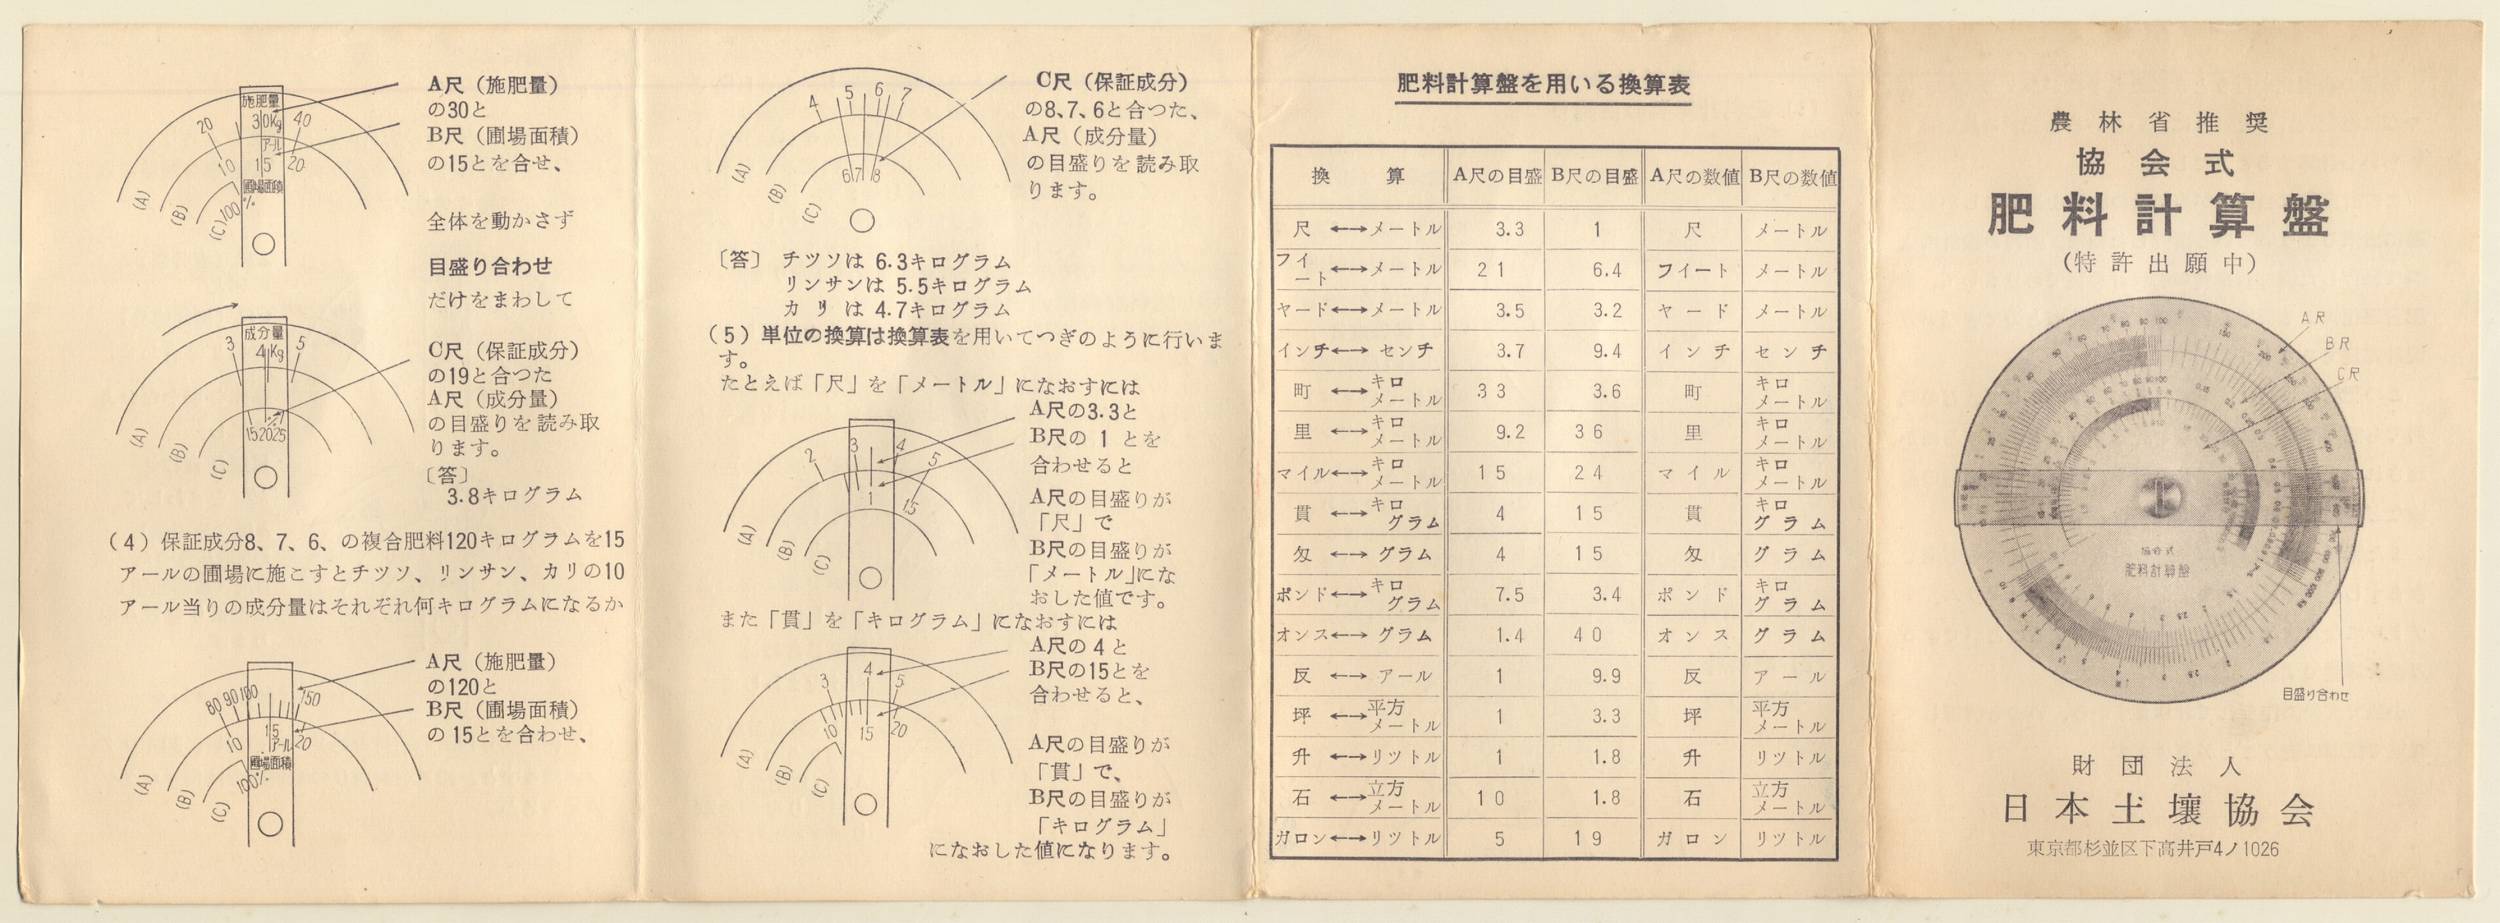 施肥量
30Kg
20
40
アール
10
15
20
圃場面積
100%
(A)
(B)
(C)
A尺（施肥量）
の30と
B尺（圃場面積）
の15とを合せ、
全体を動かさず
目盛り合わせ
だけをまわして
成分量
3
4Kg
5
%
15 20 25
(A)
(B)
(C)
C尺（保証成分）
の19と合つた
A尺（成分量）
の目盛りを読み取
ります。
〔答〕
3.8キログラム
（4）保証成分8、7、6、の複合肥料120キログラムを15
アールの圃場に施こすとチツソ、リンサン、カリの10
アール当りの成分量はそれぞれ何キログラムになるか
80 90 100
150
10
15
アール
20
圃場面積
100%
(A)
(B)
(C)
A尺（施肥量）
の120と
B尺（圃場面積）
の 15とを合わせ、
4 5 6 7
6 7 8
(A)
(B)
(C)
C尺（保証成分）
の8、7、6と合つた、
A尺（成分量）
の目盛りを読み取
ります。
〔答〕 チツソは 6.3キログラム
リンサンは 5.5キログラム
カ リ は 4.7キログラム
（5）単位の換算は換算表を用いてつぎのように行いま
す。
たとえば「尺」を「メートル」になおすには
2 3 4 5
1 15
(A)
(B)
(C)
A尺の3.3と
B尺の 1 とを
合わせると
A尺の目盛りが
「尺」で
B尺の目盛りが
「メートル」にな
おした値です。
また「貫」を「キログラム」になおすには
3 4 5
10 15 20
(A)
(B)
(C)
A尺の 4 と
B尺の15とを
合わせると、
A尺の目盛りが
「貫」で、
B尺の目盛りが
「キログラム」
になおした値になります。
肥料計算盤を用いる換算表
換 算 A尺の目盛 B尺の目盛 A尺の数値 B尺の数値
尺 ←→ メートル 3.3 1 尺 メートル
フイート ←→ メートル 21 6.4 フイート メートル
ヤード ←→ メートル 3.5 3.2 ヤード メートル
インチ ←→ センチ 3.7 9.4 インチ センチ
町 ←→ キロメートル 33 3.6 町 キロメートル
里 ←→ キロメートル 9.2 36 里 キロメートル
マイル ←→ キロメートル 15 24 マイル キロメートル
貫 ←→ キログラム 4 15 貫 キログラム
匁 ←→ グラム 4 15 匁 グラム
ポンド ←→ キログラム 7.5 3.4 ポンド キログラム
オンス ←→ グラム 1.4 40 オンス グラム
反 ←→ アール 1 9.9 反 アール
坪 ←→ 平方メートル 1 3.3 坪 平方メートル
升 ←→ リツトル 1 1.8 升 リツトル
石 ←→ 立方メートル 10 1.8 石 立方メートル
ガロン ←→ リツトル 5 19 ガロン リツトル
農林省推奨
協会式
肥料計算盤
（特許出願中）
A尺
B尺
C尺
協会式
肥料計算盤
目盛り合わせ
財団法人
日本土壌協会
東京都杉並区下高井戸4ノ1026